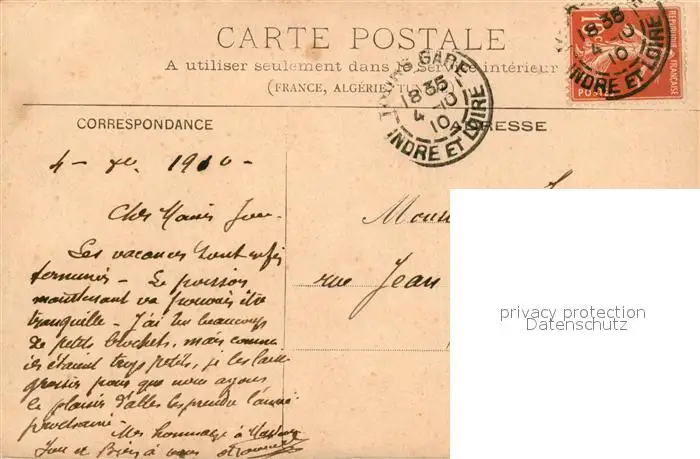 CARTE POSTALE
A utiliser seulement dans le Service intérieur
(FRANCE, ALGÉRIE, TU
CORRESPONDANCE
RESSE
TOURS GARE
18 35
4 - 10
10
INDRE ET LOIRE
18 35
4 10
10
INDRE ET LOIRE
REPUBLIQUE FRANÇAISE
POSTES
4 - 1910 -
Cher
Les vacances sont
terminées - Le poisson
maintenant va pouvoir être
tranquille - J'ai beaucoup
de petits brochets, mais comme
ils étaient trop petits, je les laisse
grossir pour que nous ayons
le plaisir d'aller les prendre l'année
prochaine -
Mes hommages à
et Bien à vous
rue Jean
privacy protection
Datenschutz